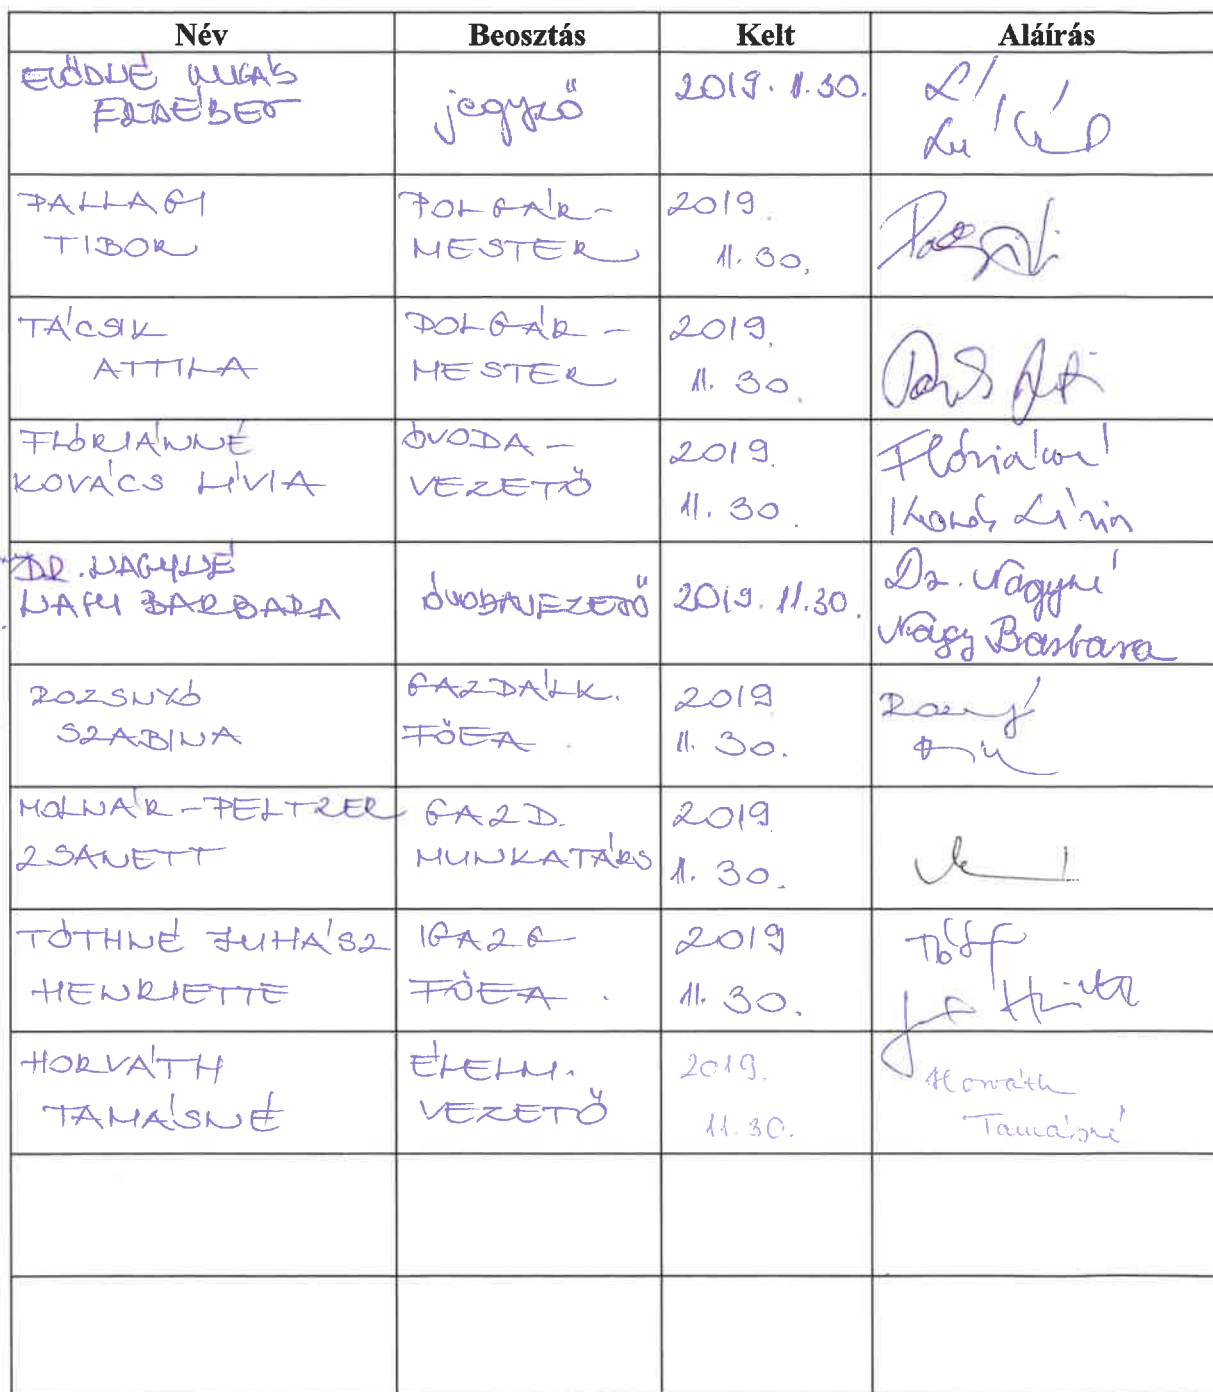 Név Beosztás Kelt Aláírás
ELŐDNÉ
ERZSÉBET
jegyző
2019. 11. 30.
PALLAGI
TIBOR
POLGÁR-
MESTER
2019.
11. 30.
TÁCSIK
ATTILA
POLGÁR-
MESTER
2019.
11. 30.
FLÓRIÁNNÉ
KOVÁCS LÍVIA
ÓVODA-
VEZETŐ
2019.
11. 30.
Flóriánné
Kovács Lívia
DR. NAGYNÉ
NAGY BARBARA
ÓVODAVEZETŐ
2019. 11. 30.
Dr. Nagyné
Nagy Barbara
ROZSNYÓ
SZABINA
GAZDÁLK.
FŐEA
2019
11. 30.
MOLNÁR-PELTZER
ZSANETT
GAZD.
MUNKATÁRS
2019
11. 30.
TÓTHNÉ JUHÁSZ
HENRIETTE
IGAZG
FŐEA.
2019
11. 30.
HORVÁTH
TAMÁSNÉ
ÉLELM.
VEZETŐ
2019.
11. 30.
Horváth
Tamásné